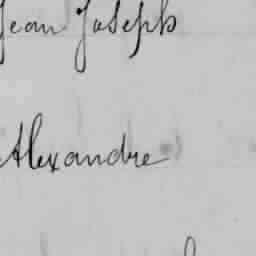 Jean Joseph
Alexandre